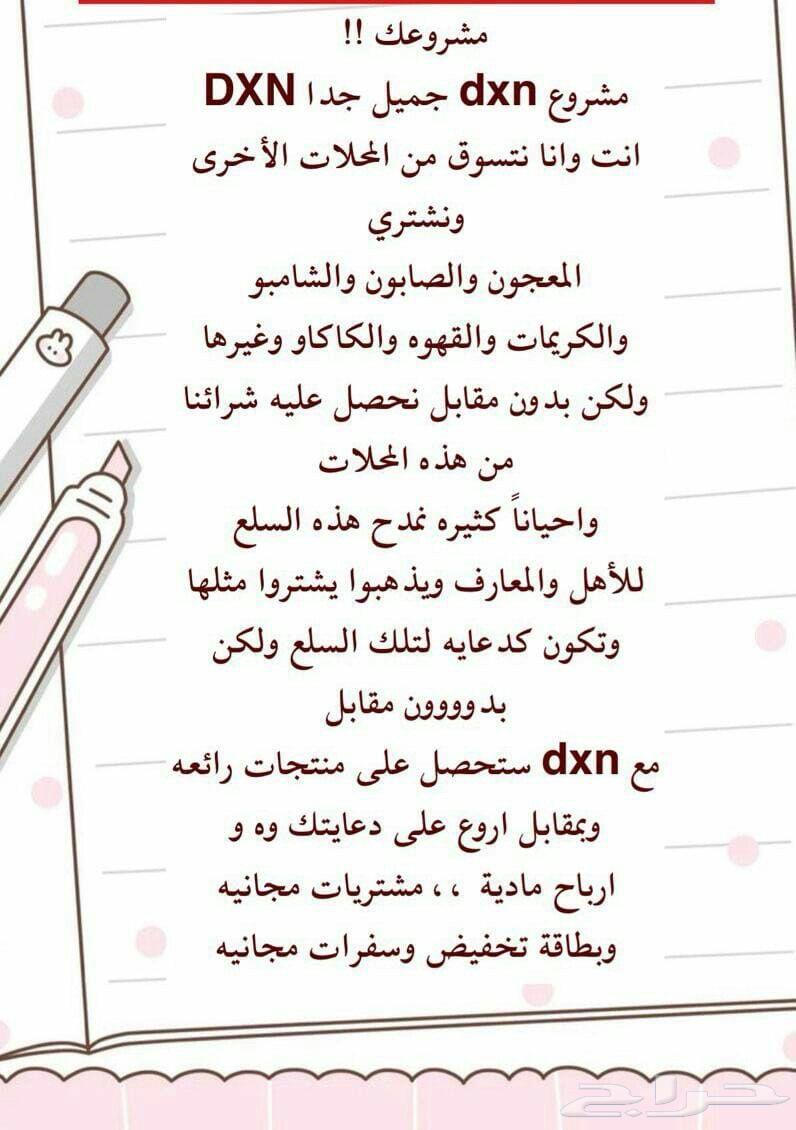 مشروعك !!
مشروع dxn جميل جدا DXN
انت وانا نتسوق من المحلات الأخرى
ونشتري
المعجون والصابون والشامبو
والكريمات والقهوه والكاكاو وغيرها
ولكن بدون مقابل نحصل عليه شرائنا
من هذه المحلات
واحياناً كثيره نمدح هذه السلع
للأهل والمعارف ويذهبوا يشتروا مثلها
وتكون كدعايه لتلك السلع ولكن
بدوووون مقابل
مع dxn ستحصل على منتجات رائعه
وبمقابل اروع على دعايتك وه و
ارباح مادية ،، مشتريات مجانيه
وبطاقة تخفيض وسفرات مجانيه
حراج